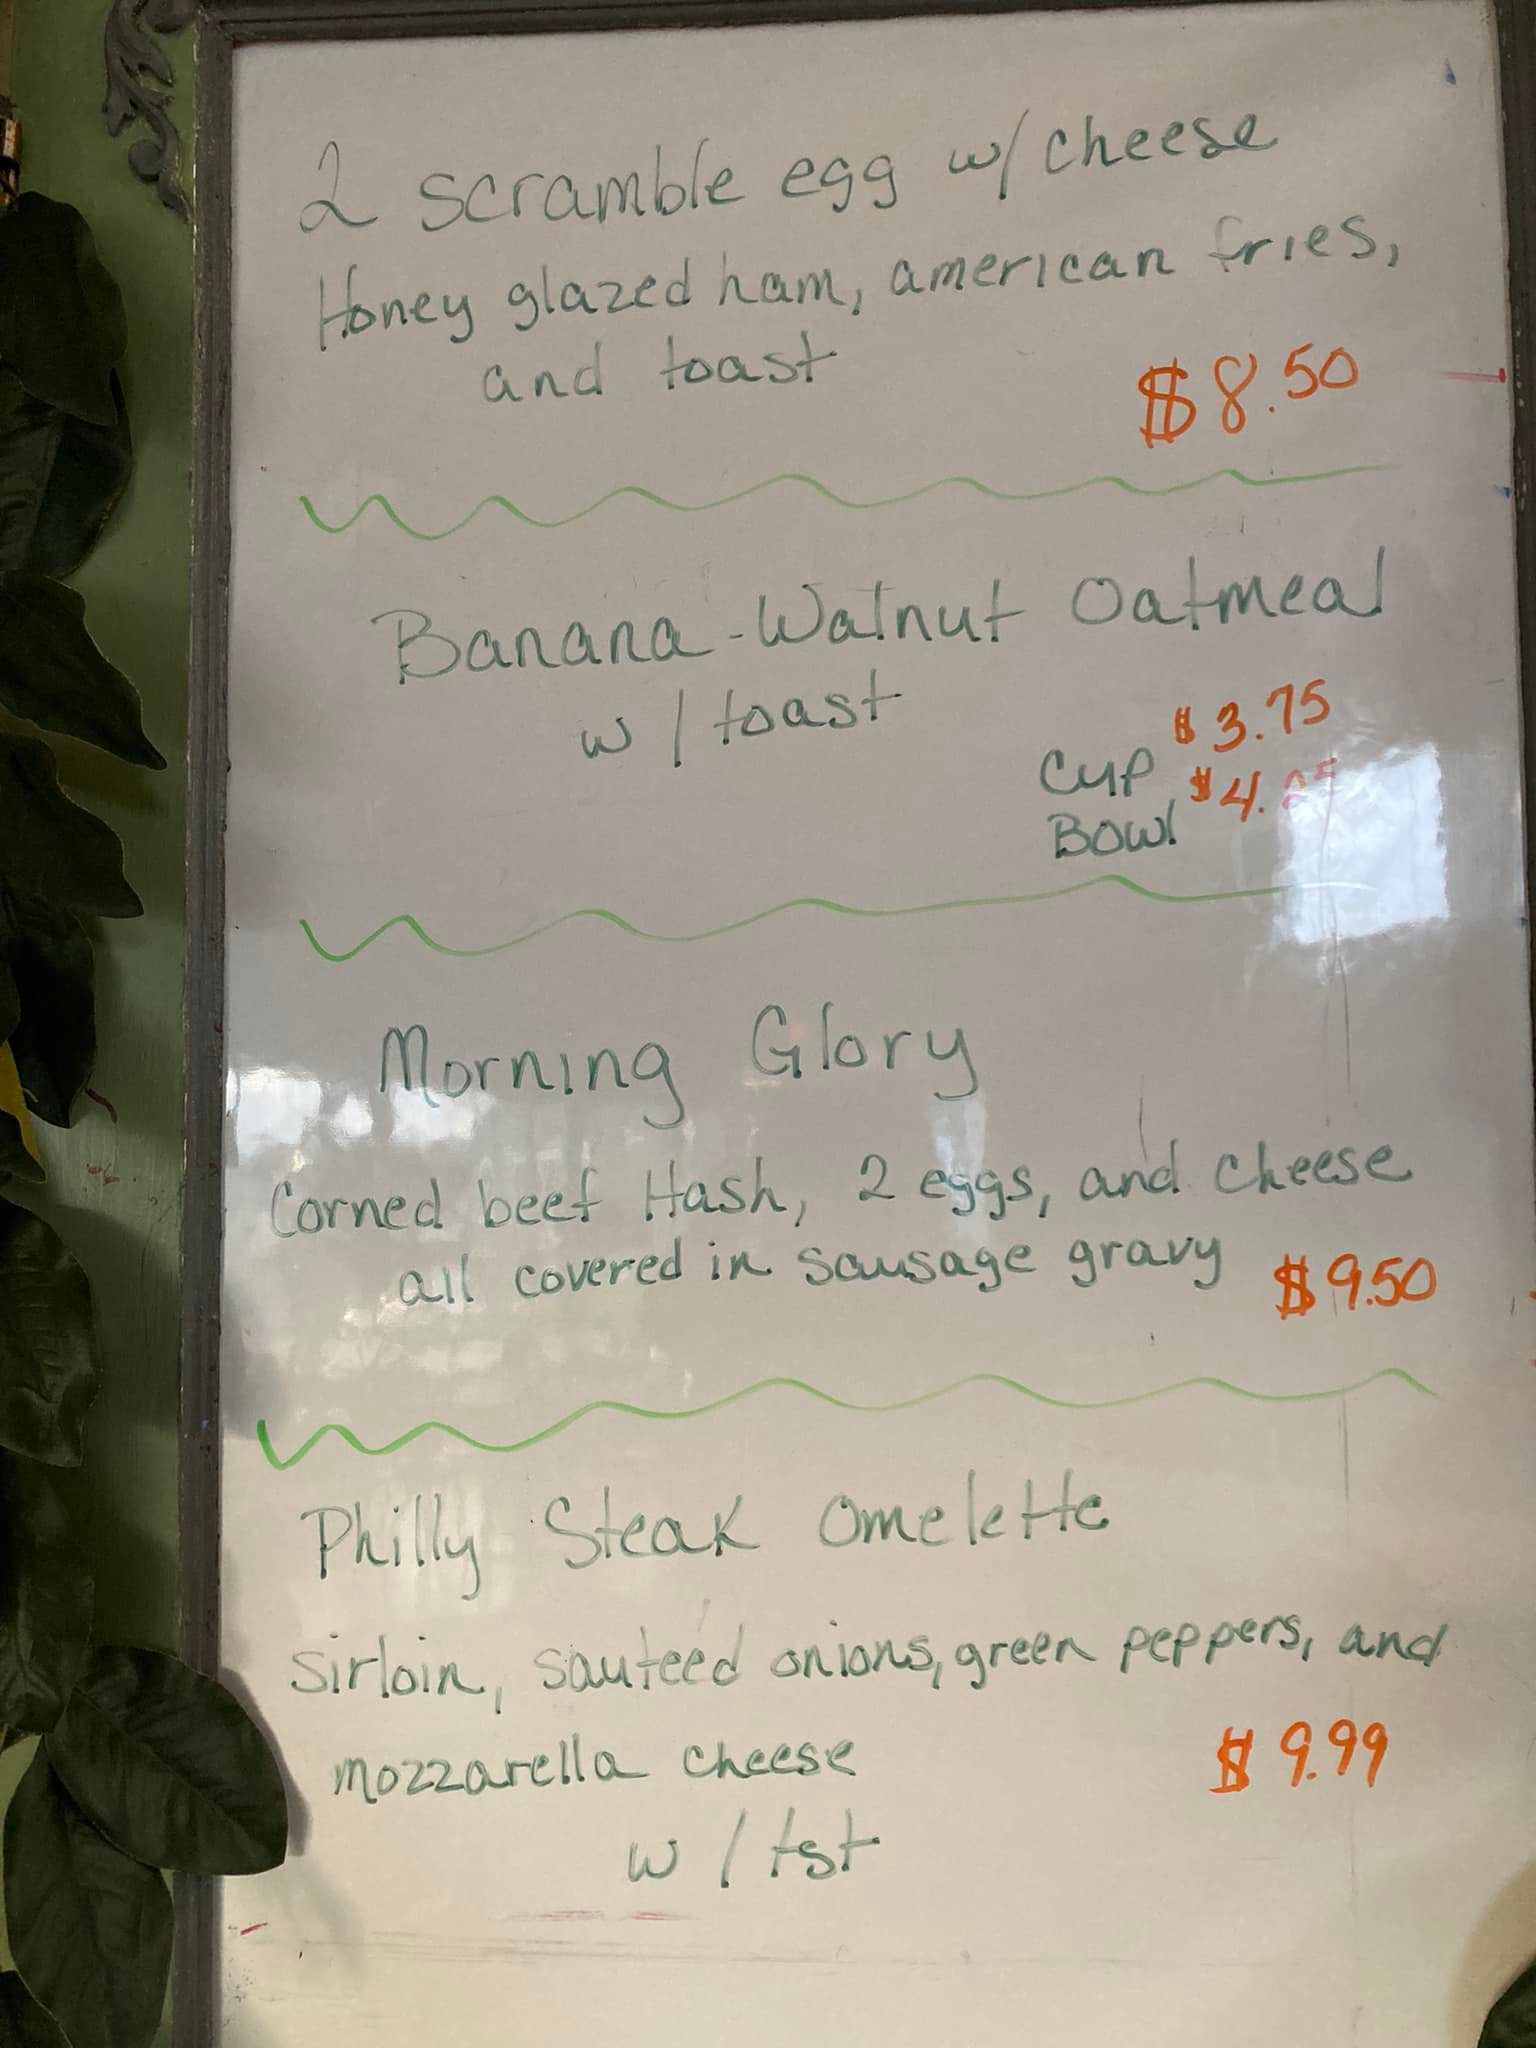 2 scramble egg w/ cheese
Honey glazed ham, american fries,
and toast
$8.50
Banana-Walnut Oatmeal
w/toast
Cup $3.75
Bowl $4.
Morning Glory
Corned beef Hash, 2 eggs, and cheese
all covered in sausage gravy $9.50
Philly Steak Omelette
sirloin, sauteed onions, green peppers, and
mozzarella cheese $9.99
w/tst